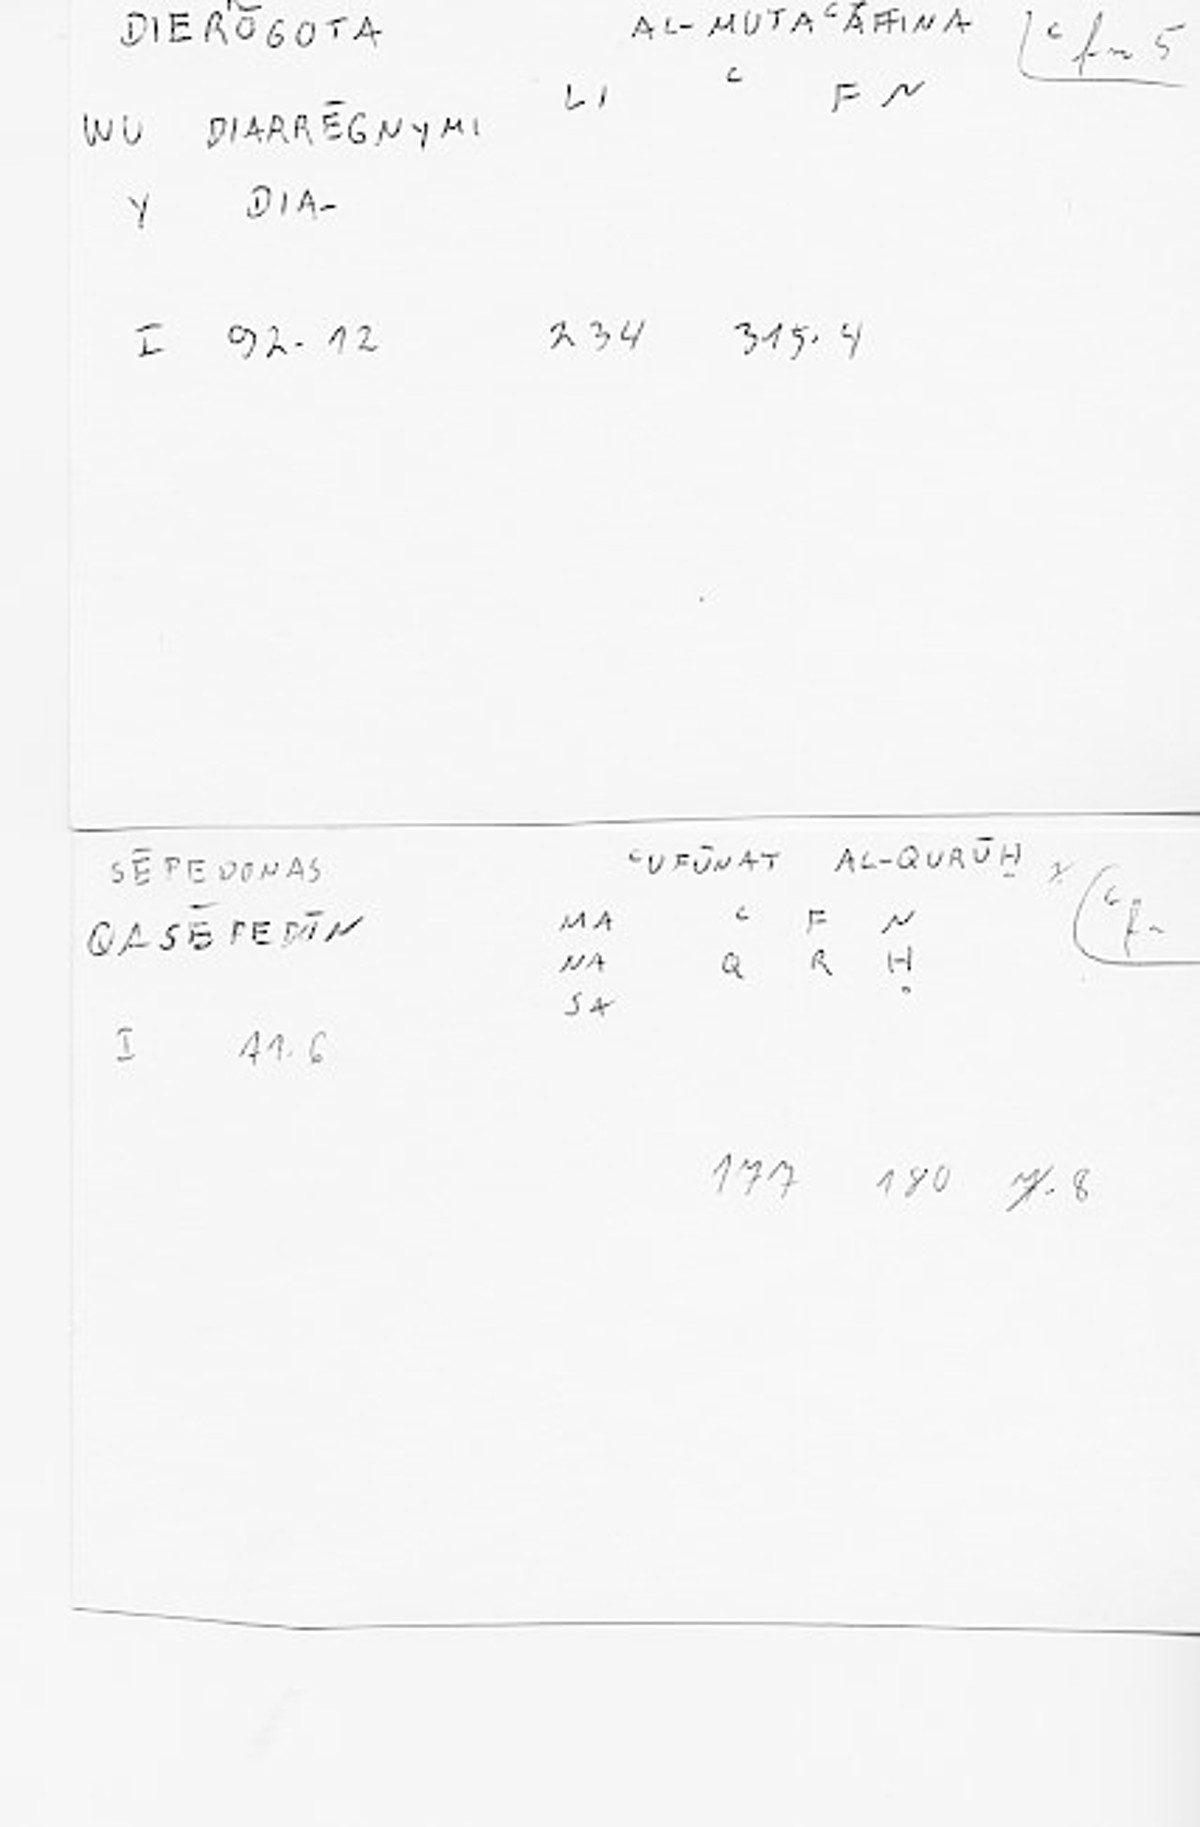 DIERŌGOTA AL-MUTAʿAFFINA ʿfn 5
LI ʿ F N
WU DIARRĒGNYMI
Y DIA-
I 92.12 234 315.4
SĒPEDONAS ʿUFŪNAT AL-QURŪḤ ʿfn
QASĒPEDŌN MA ʿ F N
NA Q R Ḥ
SA
I 11.6
177 180 8